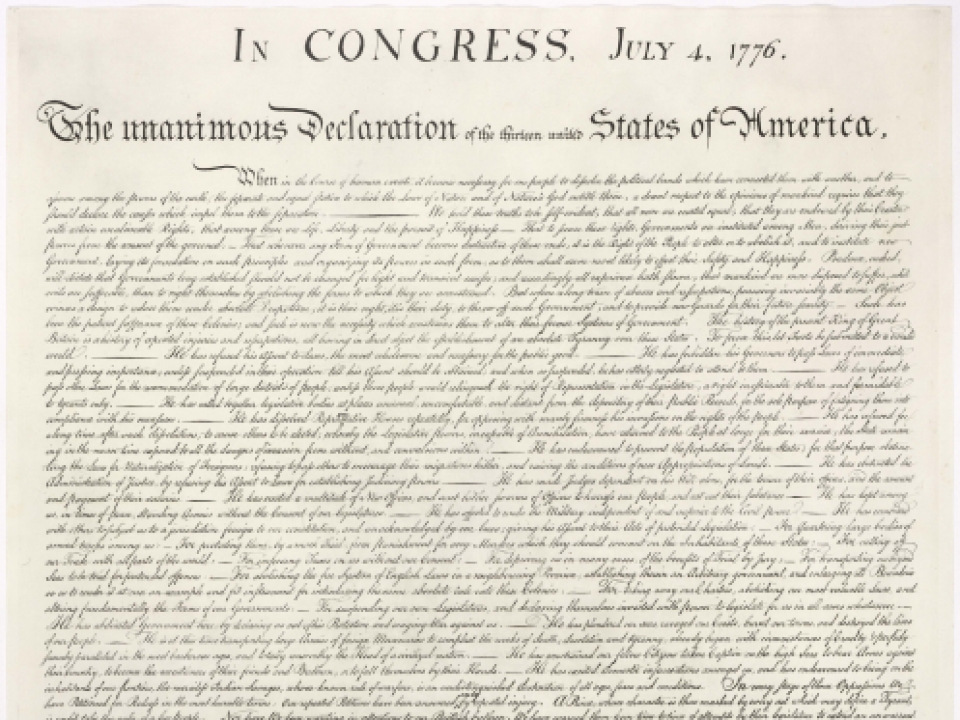 IN CONGRESS, JULY 4, 1776.
The unanimous Declaration of the thirteen united States of America,
When in the Course of human events, it becomes necessary for one people to dissolve the political bands which have connected them with another, and to
assume among the powers of the earth, the separate and equal station to which the Laws of Nature and of Nature's God entitle them, a decent respect to the opinions of mankind requires that they
should declare the causes which impel them to the separation. ——— We hold these truths to be self-evident, that all men are created equal, that they are endowed by their Creator
with certain unalienable Rights, that among these are Life, Liberty and the pursuit of Happiness — That to secure these rights, Governments are instituted among Men, deriving their just
powers from the consent of the governed, — That whenever any Form of Government becomes destructive of these ends, it is the Right of the People to alter or to abolish it, and to institute new
Government, laying its foundation on such principles and organizing its powers in such form, as to them shall seem most likely to effect their Safety and Happiness. Prudence, indeed,
will dictate that Governments long established should not be changed for light and transient causes; and accordingly all experience hath shewn, that mankind are more disposed to suffer, while
evils are sufferable, than to right themselves by abolishing the forms to which they are accustomed. But when a long train of abuses and usurpations, pursuing invariably the same Object
evinces a design to reduce them under absolute Despotism, it is their right, it is their duty, to throw off such Government, and to provide new Guards for their future security. — Such has
been the patient sufferance of these Colonies; and such is now the necessity which constrains them to alter their former Systems of Government. The history of the present King of Great
Britain is a history of repeated injuries and usurpations, all having in direct object the establishment of an absolute Tyranny over these States. To prove this, let Facts be submitted to a candid
world. ——— He has refused his Assent to Laws, the most wholesome and necessary for the public good. ——— He has forbidden his Governors to pass Laws of immediate
and pressing importance, unless suspended in their operation till his Assent should be obtained; and when so suspended, he has utterly neglected to attend to them. ——— He has refused to
pass other Laws for the accommodation of large districts of people, unless those people would relinquish the right of Representation in the Legislature, a right inestimable to them and formidable
to tyrants only. ——— He has called together legislative bodies at places unusual, uncomfortable, and distant from the depository of their Public Records, for the sole purpose of fatiguing them into
compliance with his measures. ——— He has dissolved Representative Houses repeatedly, for opposing with manly firmness his invasions on the rights of the people. ——— He has refused for
a long time, after such dissolutions, to cause others to be elected; whereby the Legislative powers, incapable of Annihilation, have returned to the People at large for their exercise; the State remain-
ing in the mean time exposed to all the dangers of invasion from without, and convulsions within. ——— He has endeavoured to prevent the population of these States; for that purpose obstruc-
ting the Laws for Naturalization of Foreigners; refusing to pass others to encourage their migrations hither, and raising the conditions of new Appropriations of Lands. ——— He has obstructed the
Administration of Justice, by refusing his Assent to Laws for establishing Judiciary powers. ——— He has made Judges dependent on his Will alone, for the tenure of their offices, and the amount
and payment of their salaries. ——— He has erected a multitude of New Offices, and sent hither swarms of Officers to harrass our people, and eat out their substance. — He has kept among
us, in times of peace, Standing Armies without the Consent of our legislatures. — He has affected to render the Military independent of and superior to the Civil power. — He has combined
with others to subject us to a jurisdiction foreign to our constitution, and unacknowledged by our laws; giving his Assent to their Acts of pretended Legislation: — For Quartering large bodies of
armed troops among us: — For protecting them, by a mock Trial, from punishment for any Murders which they should commit on the Inhabitants of these States: — For cutting off
our Trade with all parts of the world: — For imposing Taxes on us without our Consent: — For depriving us in many cases, of the benefits of Trial by Jury: — For transporting us beyond
Seas to be tried for pretended offences — For abolishing the free System of English Laws in a neighbouring Province, establishing therein an Arbitrary government, and enlarging its Boundaries
so as to render it at once an example and fit instrument for introducing the same absolute rule into these Colonies: — For taking away our Charters, abolishing our most valuable Laws, and
altering fundamentally the Forms of our Governments: — For suspending our own Legislatures, and declaring themselves invested with power to legislate for us in all cases whatsoever. —
He has abdicated Government here, by declaring us out of his Protection and waging War against us. — He has plundered our seas, ravaged our Coasts, burnt our towns, and destroyed the lives
of our people. — He is at this time transporting large Armies of foreign Mercenaries to compleat the works of death, desolation and tyranny, already begun with circumstances of Cruelty & perfidy
scarcely paralleled in the most barbarous ages, and totally unworthy the Head of a civilized nation. — He has constrained our fellow Citizens taken Captive on the high Seas to bear Arms against
their Country, to become the executioners of their friends and Brethren, or to fall themselves by their Hands. — He has excited domestic insurrections amongst us, and has endeavoured to bring on the
inhabitants of our frontiers, the merciless Indian Savages, whose known rule of warfare, is an undistinguished destruction of all ages, sexes and conditions. In every stage of these Oppressions We
have Petitioned for Redress in the most humble terms: Our repeated Petitions have been answered only by repeated injury. A Prince, whose character is thus marked by every act which may define a Tyrant,